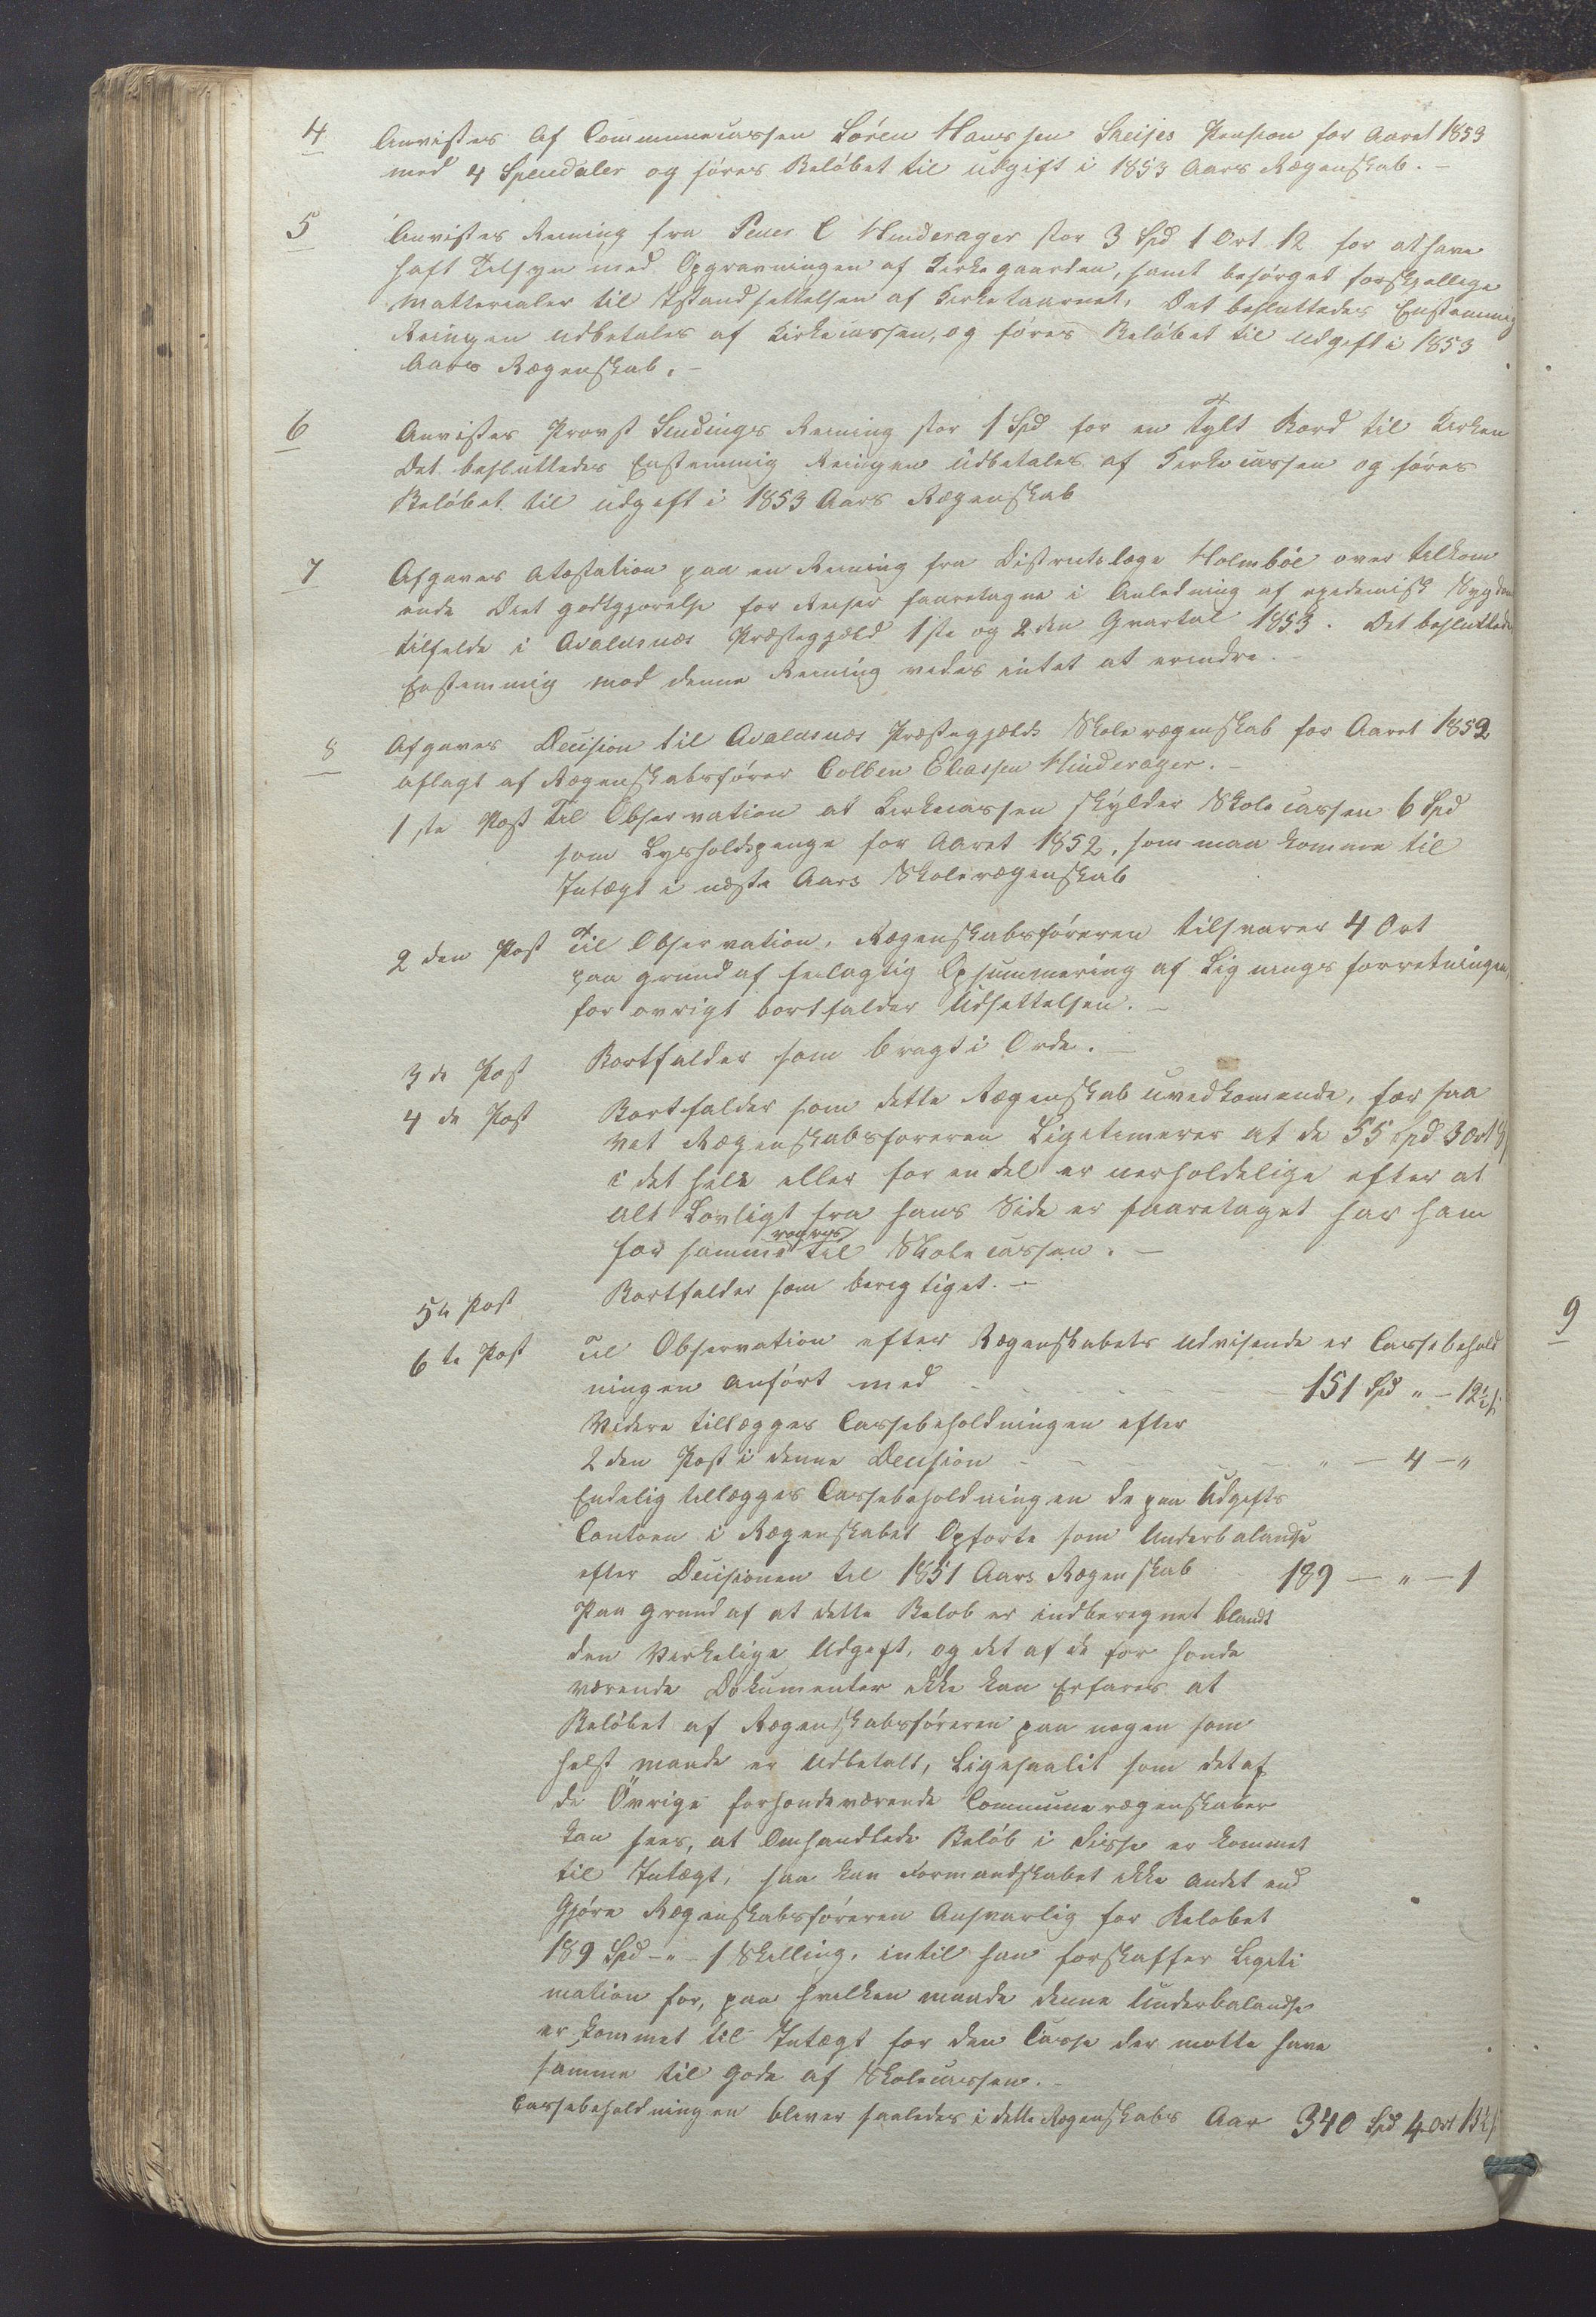 4 Anvistes af Communecassen Sören Hanssen Pension for Aaret 1853
med 4 Speudaler og föres Belöbet til udgift i 1853 Aars Regenskab. –
5 Anvistes Rening fra Peder C Hinderager stor 3 Spd 1 Ort 12 for at have
haft Tilsyn med Opgravningen af Kirkegaarden, samt besörget forskjellige
Matterialer til Istandsettelsen af Kirketaarnet, Det besluttedes Enstemmig
Reingen udbetales af Kirkecassen, og föres Belöbet til udgeft i 1853
Aars Regenskab. –
6 Anvistes Provst Sendings Rening stor 1 Spd for en Tylt Bord til Kirken
Det besluttedes Enstemmig Reingen udbetales af Kirkecassen og föres
Belöbet til udgeft i 1853 Aars Regenskab
7 Afgaves Atestation paa en Rening fra Distrectslæge Holmböe over tilkom
ende Diet godtgjorelse for Reiser faaretagne i Anledning af epedemisk Sygdoms
tilfelde i Avalesnæs Præstegjeld 1ste og 2den Qvartal 1853. Det besluttedes
Enstemmig mod denne Rening vides intet at erindre. –
8 Afgaves Decision til Avalesnæs Præstegjelds Skoleregenskab for Aaret 1852
aflagt af Regenskabsförer Colben Eliassen Hinderager. –
1ste Post Til Observation at Kirkecassen skylder Skolecassen 6 Spd
som Lysholdspenge for Aaret 1852, som maa komme til
Intægt i næste Aars Skoleregenskab
2den Post Til Observation, Regenskabsföreren tilsvarer 4 Ort
paa grund af feilagtig Opsummering af Ligningsforretningen,
for övrigt bortfalder Udsettelsen. –
3de Post Bortfalder som bragt i Orde. –
4de Post Bortfalder som dette Regenskab uvedkomende, for saa
vet Regenskabsföreren Ligitimerer at de 55 Spd 3 Ort
i det hele eller for en del er uerholdelige efter at
alt Lovligt fra hans Side er faaretaget har ham
for samme til Skolecassen. –
5te Post Bortfalder som beregtiget. –
6te Post Til Observation efter Regenskabets udvisende er Cassebehold
ningen anfört med – – – – 151 Spd „ – 12½
Videre tillægges Cassebeholdningen efter
2den Post i denne Decision – – – „ – 4 – „
Endelig tillægges Cassebeholdningen de paa Udgifts
Contoen i Regenskabet Opförte som Underbalandse
efter Decisionen til 1851 Aars Regenskab – 189 – „ – 1
Paa grund af at dette Belob er indberegnet blandt
den Verkelige Udgeft, og det af de for honde
værende Dokumenter ikke kan Erfares at
Belöbet af Regenskabsföreren paa nogen som
helst maade er Udbetalt, Ligesaalit som det af
de Övrige forhondeværende Communeregenskaber
kan sees, at Omhandlede Belöb i disse er kommet
til Intægt, saa kan Formandskabet ikke andet end
Gjöre Regenskabsföreren Ansvarlig for Belobet
189 Spd – „ – 1 Skelling, intil han forskaffer Legiti
mation for, paa hvelken maade denne Underbalandse
er kommet til Intægt for den Casse der motte have
samme til gode af Skolecassen. –
Cassebeholdningen blever saaledes i dette Regenskabs Aar 340 Spd 4 Ort 13½
9